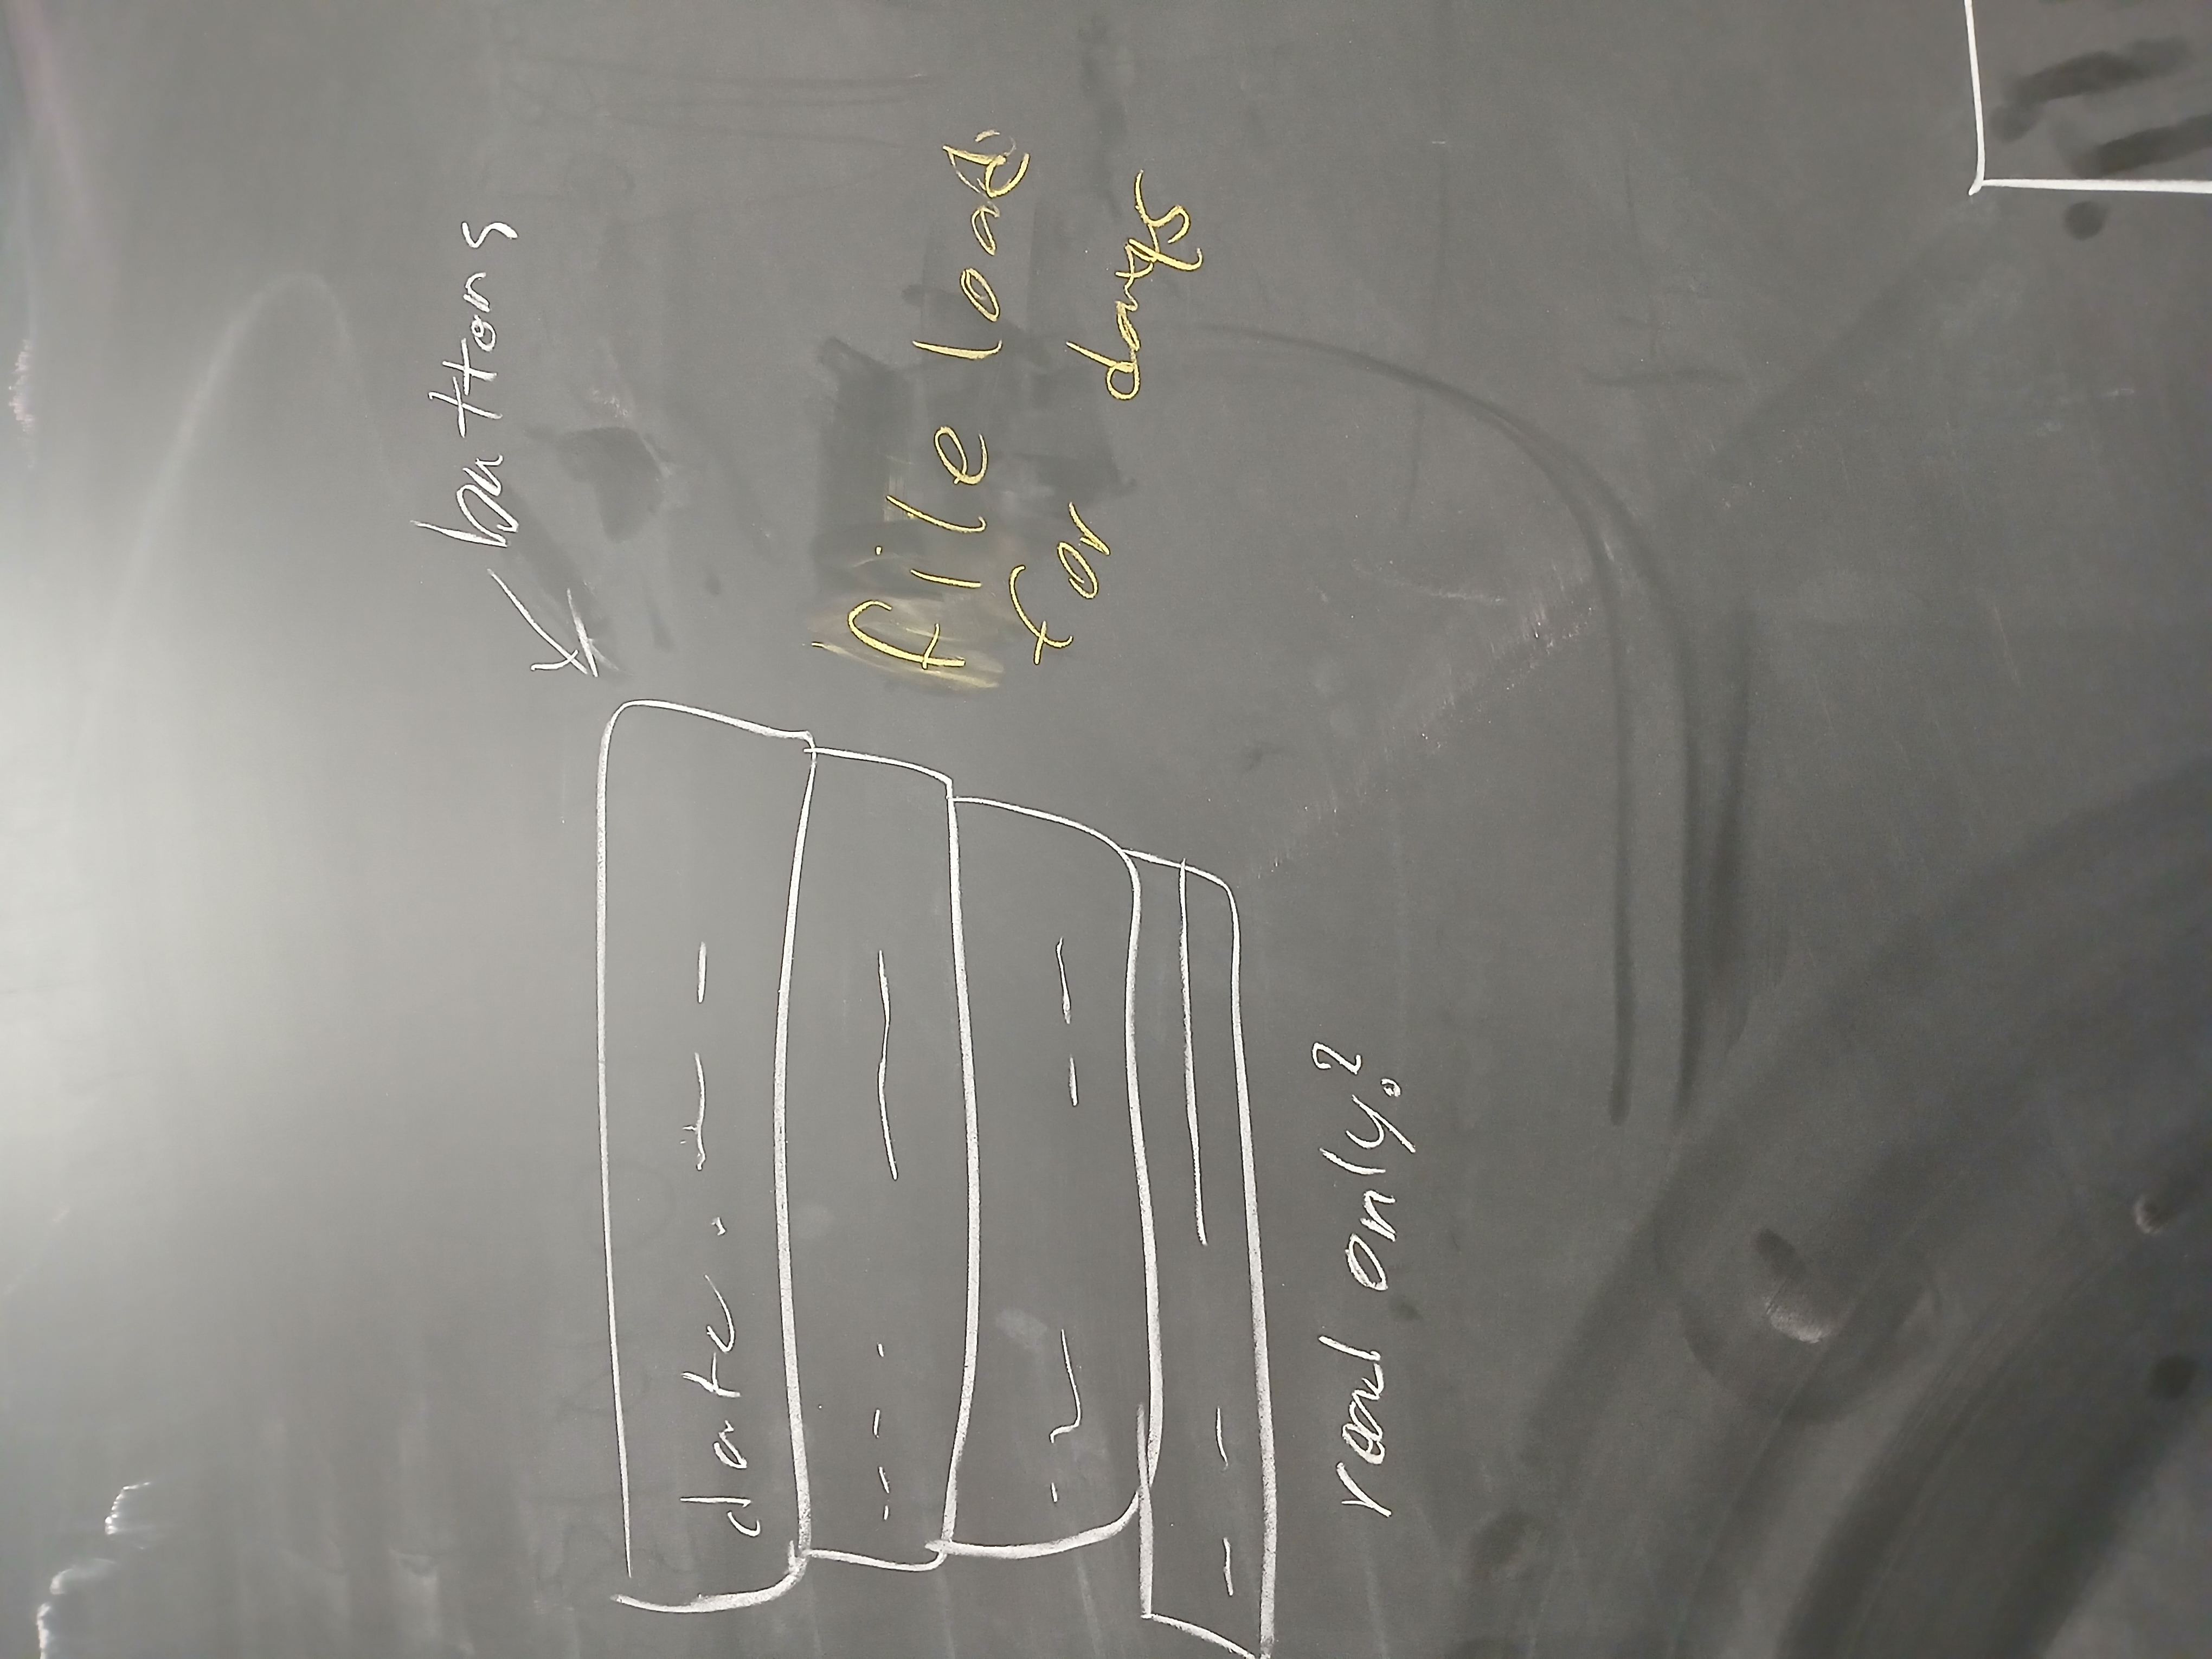 buttons
date.
file load
for days
read only?